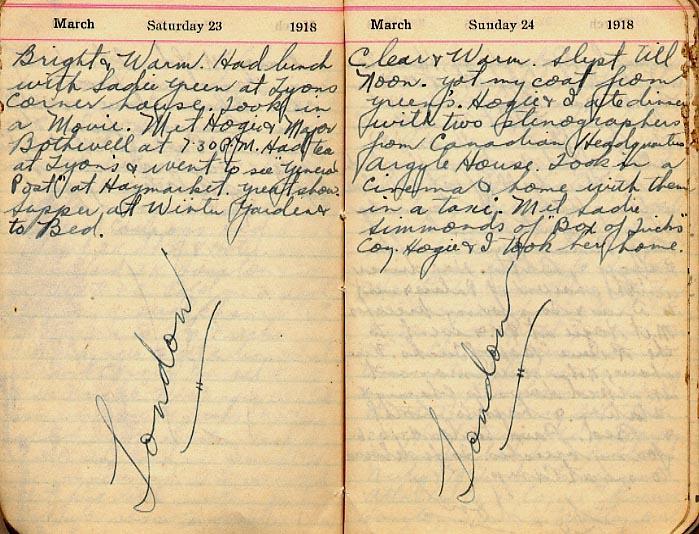 March Saturday 23 1918
Bright & Warm. Had lunch
with Sadie Green at Lyons
Corner house. Took in
a Movie. Met Hogie & Major
Bothwell at 7:30 P.M. Had tea
at Lyons & went to see "General
Post" at Haymarket. Great show.
Supper at Winter Garden &
to Bed.
London
March Sunday 24 1918
Clear & Warm. Slept till
Noon. Got my coat from
Green's. Hogie & I ate dinner
with two stenographers
from Canadian Headquarters
Argyle House. Took in a
Cinema & home with them
in a taxi. Met Sadie
Simmonds of "Box of Tricks"
Coy. Hogie & I took her home.
London